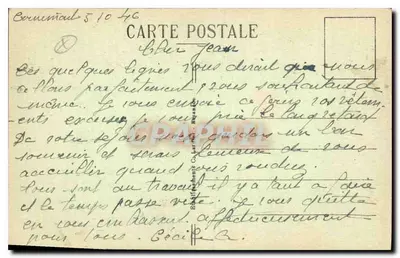 Cornimont 5 10 46
CARTE POSTALE
Cher Jean
Ces quelques lignes vous dirait que nous
allons parfaitement vous souhaitant de
même. Je vous envoie ce jour vos vêtem
ents excusez je vous prie le long retard
De votre séjour gardes un bon
souvenir et serais heureux de vous
accueillir quand vous voudrez
Tous sont au travail il y a tant à faire
et le temps passe vite. Je vous quitte
en vous embrassant affectueusement
pour tous. Cécile